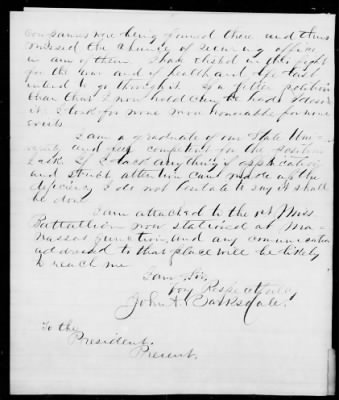 companies were being formed there and thus
missed the chance of securing office
in any of them. I have enlisted in this fight
for the war and if health and life last
intend to go through it. If a better position
than that I now hold can be had I desire
it. I look for none more honorable for none
exists
I am a graduate of our State Uni-
versity and feel competent for the position
I ask. If I lack anything & application
and strict attention can make up the
deficiency I do not hesitate to say it shall
be done
I am attached to the 1st Miss.
Battallion now stationed at Ma-
nassas Junction and any communication
addressed to that place will be likely
to reach me
I am Sir,
Very Respectfully
John A. Barksdale.
To the
President.
Present.